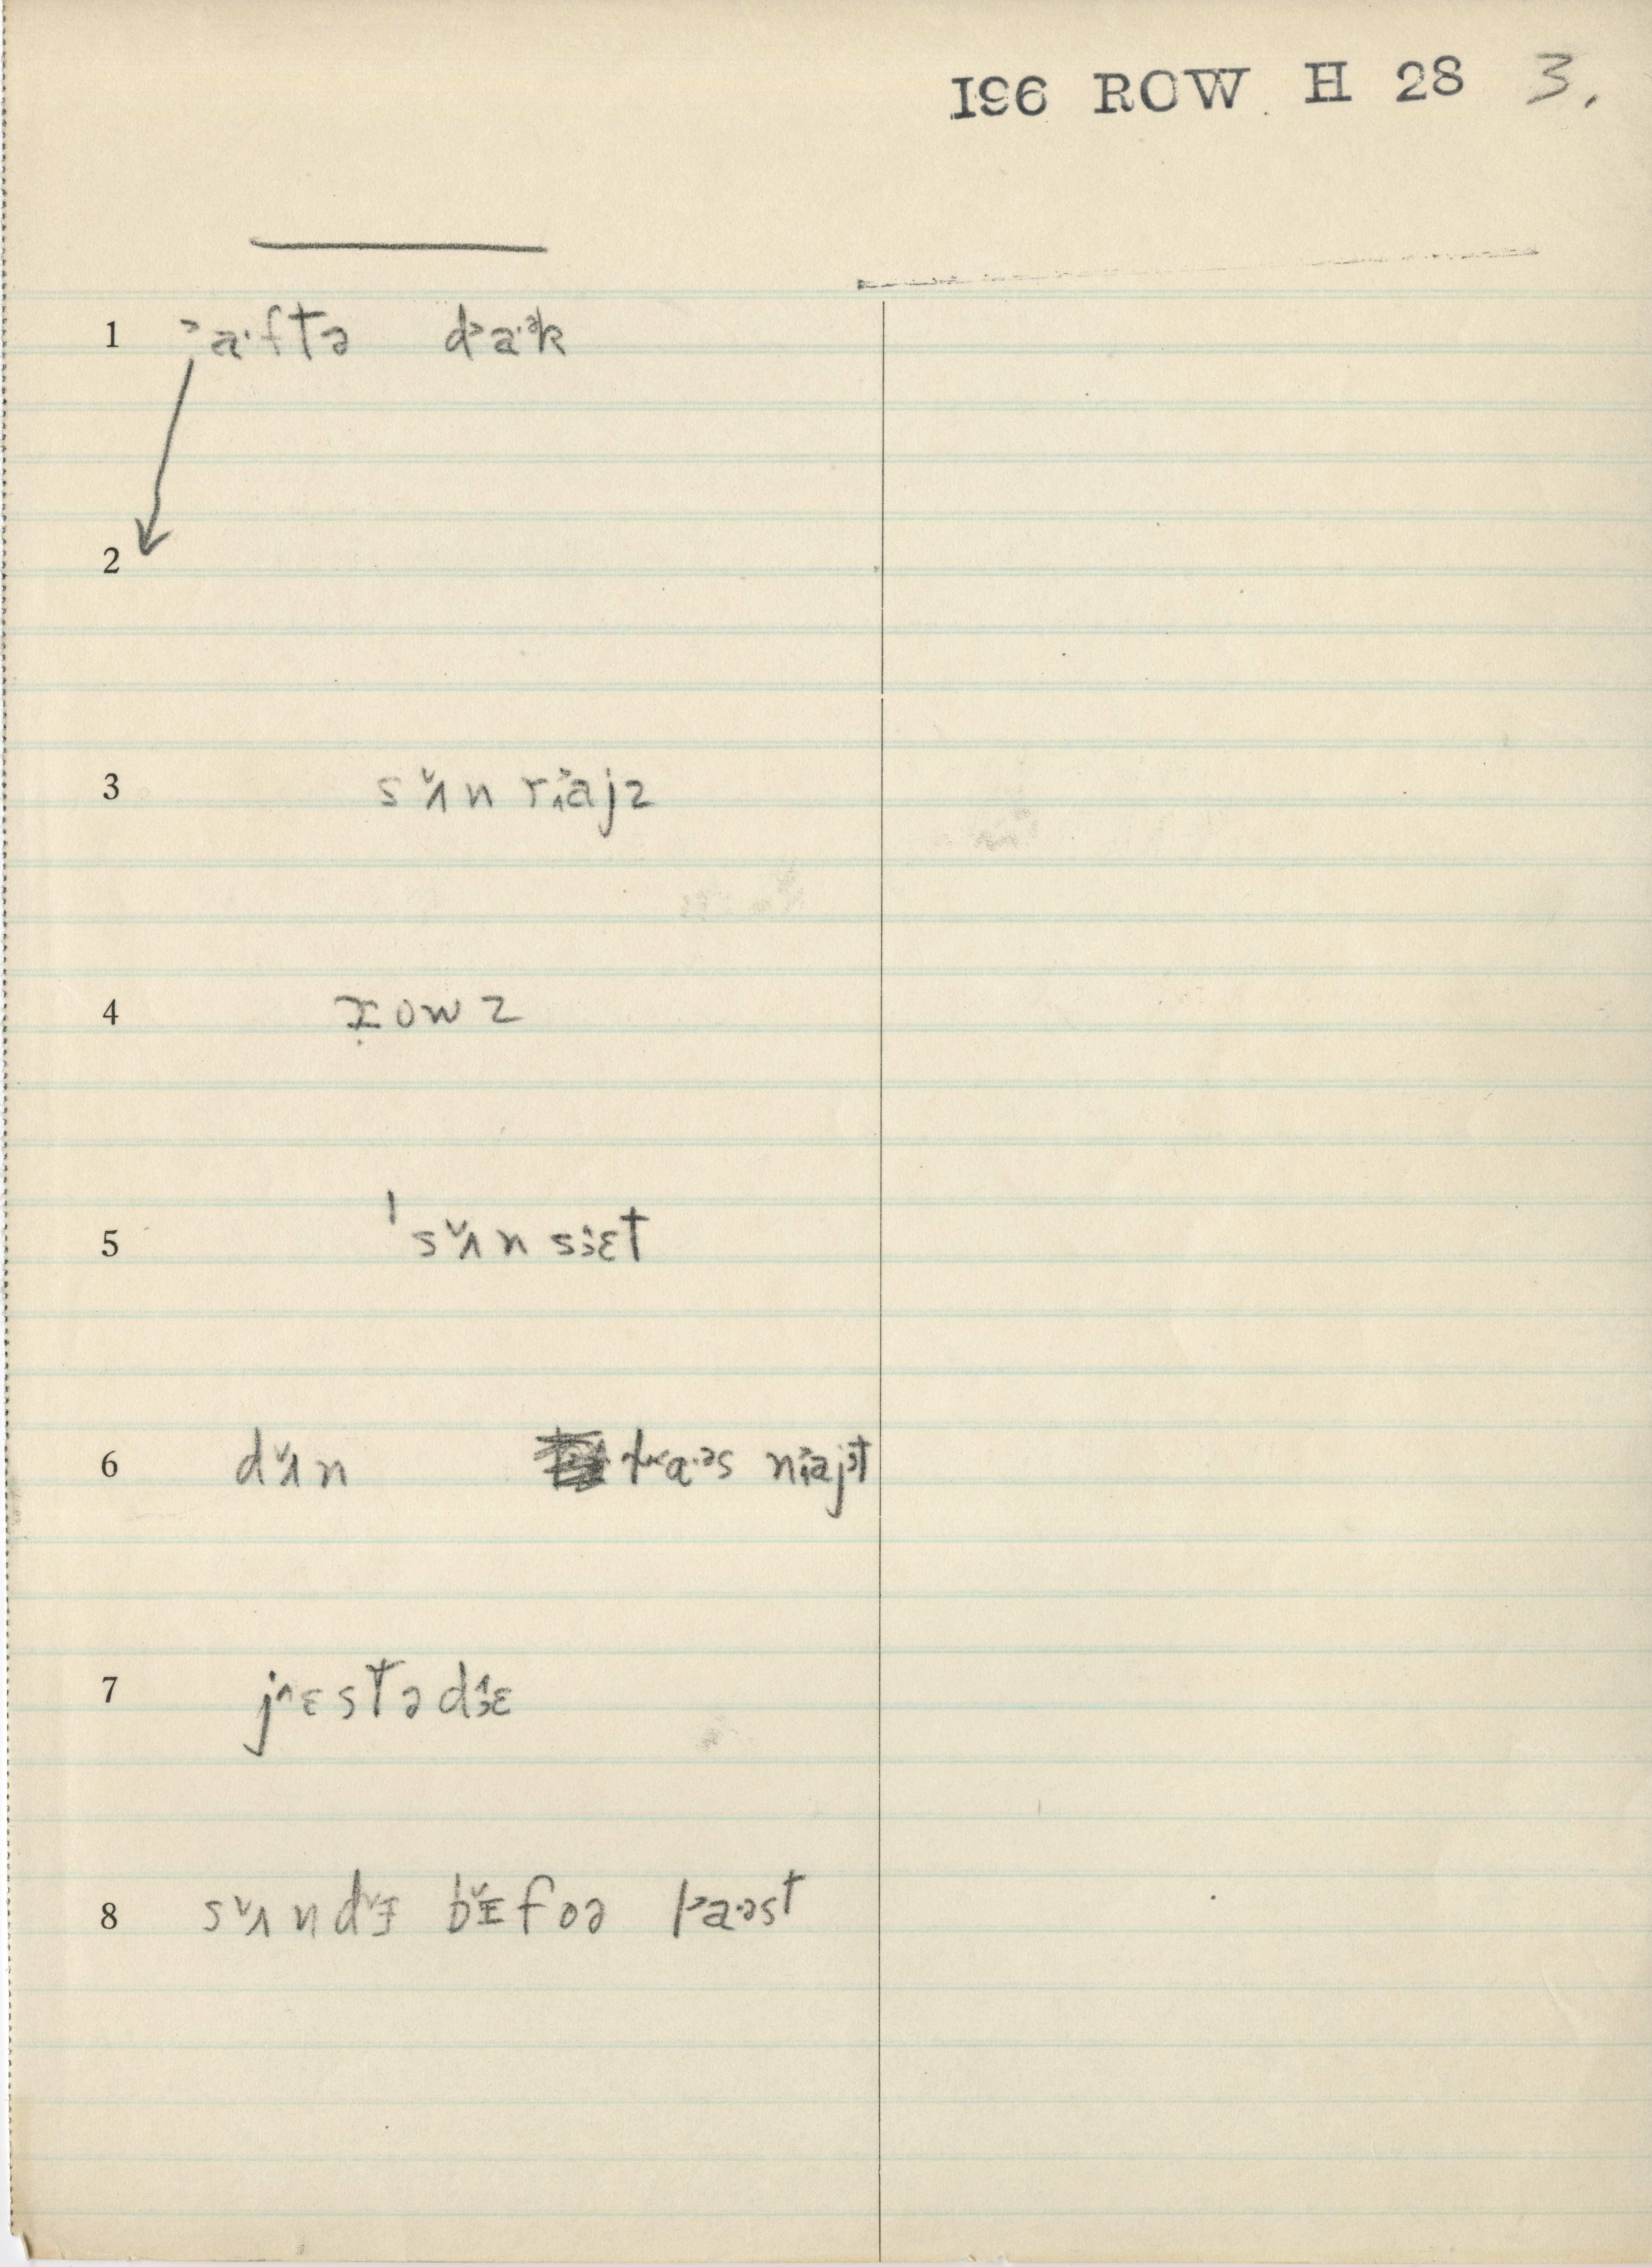 196 ROW H 28 3.
1 ˃a·ftə d˃a·ᵊk
2
3 sʌ̌n rᴧa˃jz
4 ɪowz
5 ˈsʌ̌n sɜ̂ɛt
6 dʌ̌n a·ᵊs na˃jt
7 j^ɛstədɜ̂ɛ
8 sʌ̌ndɪ̌ bɪ̌foə pa·əst